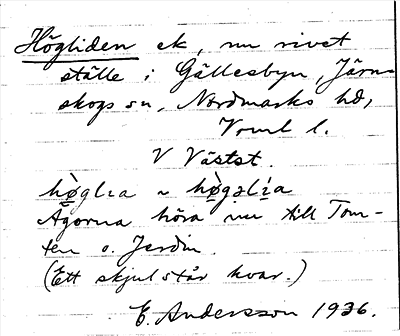 Högliden ek, nu rivet
ställe i Gällesbyn, Järns
skogs sn, Nordmarks hd,
Vrml l.
V Västst.
hø̀glıa ~ hø̀gəlí̀a
Ägorna höra nu till Tom-
ten o. Jerdin.
(Ett skjul står kvar.)
E. Andersson 1936.